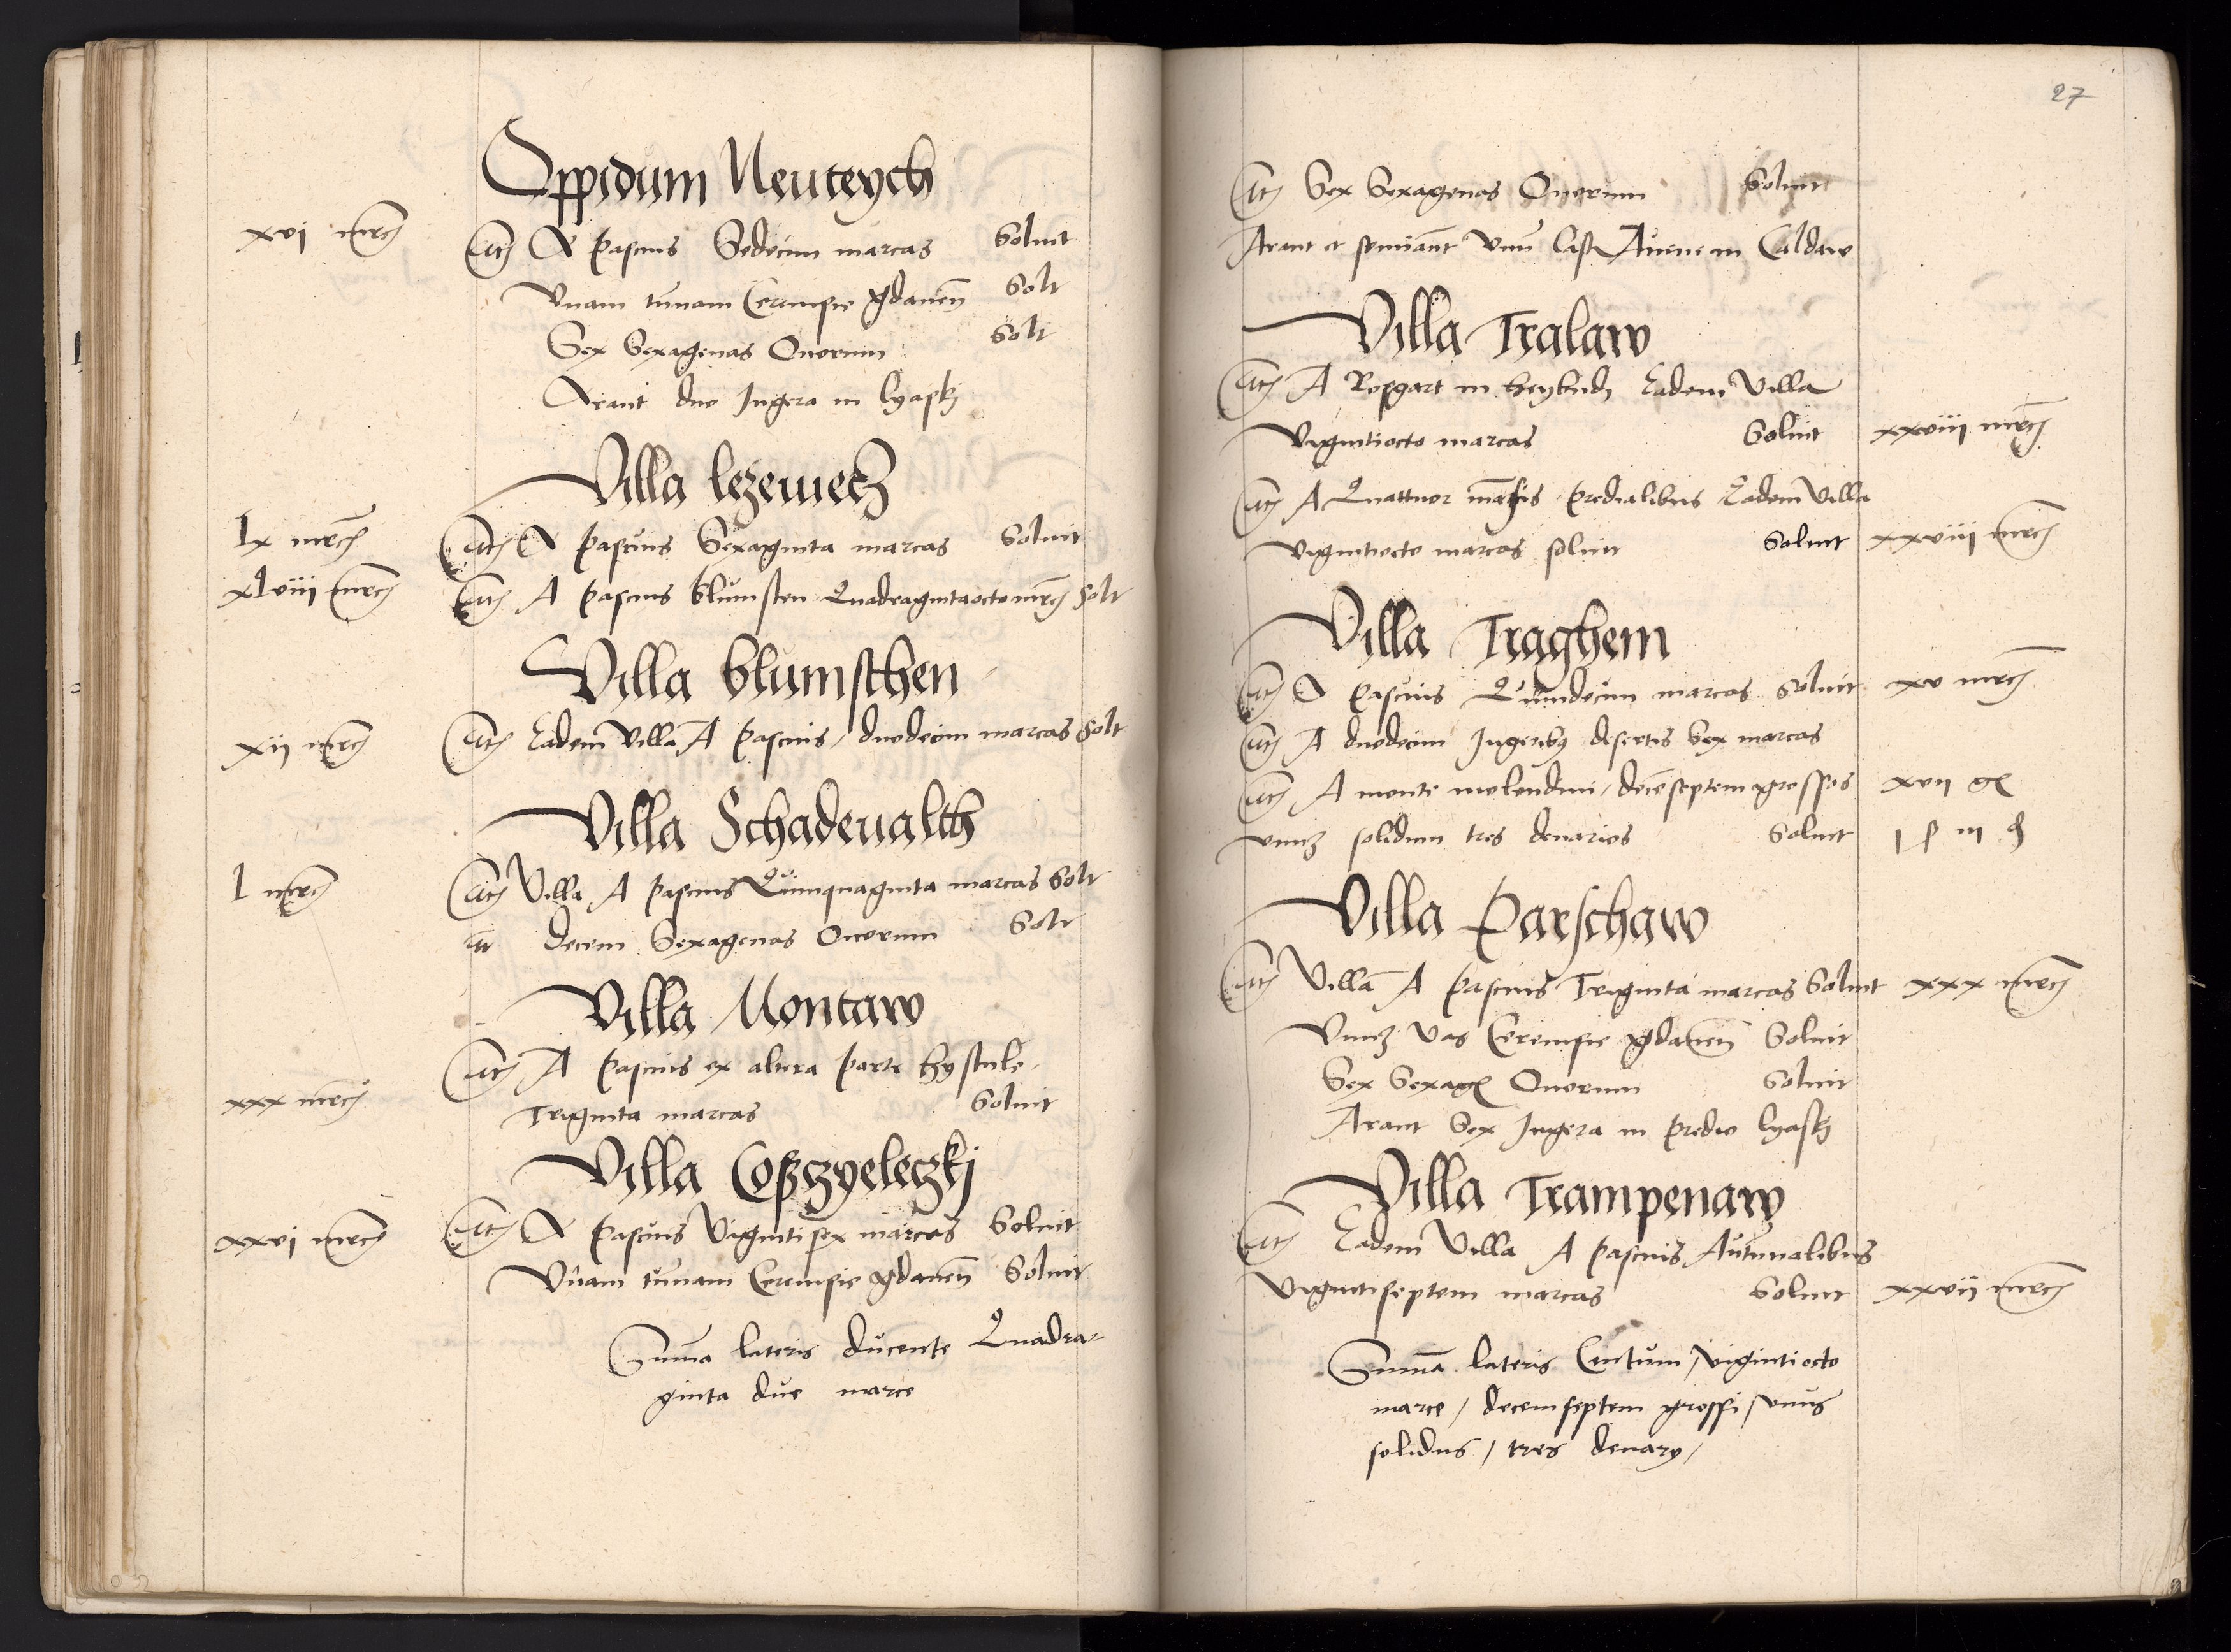 Oppidum Neuteych
xvi mrc Itē A pascuis Sedecim marcas Soluit
Vnam tunnam Cerevisie gdanen̄ Solt
Sex Sexagenas Ouorum Solt
Arant duo Jugera in lyasky
Villa lezewetz
lx mrc Itē A pascuis Sexaginta marcas Soluit
xlviii mrc Itē A pascuis blumsten Quadragintaocto mrc Solt
Villa blumsthen
xii mrc Itē Eadem Villa A pascuis / duodecim marcas Solt
Villa Schadeualth
l mrc Itē Villa A pascuis Quinquaginta marcas Solt
It decem Sexagenas Ouorum Solt
Villa Montaw
Itē A pascuis ex altera parte hystule
xxx mrc Triginta marcas Soluit
Villa Coßczyeleczkj
xxvi mrc Itē A pascuis Vigintisex marcas Soluit
Vnam tunnam Cerevisie gdanen̄ Soluit
Summa lateris ducente Quadra-
ginta due marce
27
Itē Sex Sexagenas Ouorum Soluit
Arant et seminant vnū last Auene in Caldaw
Villa Tralaw
Itē A Rosgart in Eadem Villa
Vigintiocto marcas Soluit xxviii mrc
Itē A Quattuor māsis predialibus Eadem Villa
vigintiocto marcas soluit Soluit xxviii mrc
Villa Traghem
Itē A pascuis Quindecim marcas Soluit xv mrc
Itē A duodecim Jugeribꝫ desertis Sex marcas
Itē A monte molendini / decēseptem grossos xvii gr
vnuꝫ solidum tres denarios Soluit i s iii d
Villa Parschaw
Itē Villa A pascuis Triginta marcas Soluit xxx mrc
Vnuꝫ vas Cerevisie gdanen̄ Soluit
Sex Sexag Ouorum Soluit
Arant Sex Jugera in predio lyasky
Villa Trampenaw
Itē Eadem Villa A pascuis Autumalibus
Vigintiseptem marcas Soluit xxvii mrc
Summa lateris Centum / viginti octo
marce / decemseptem grossi / vnus
solidus / tres denary /